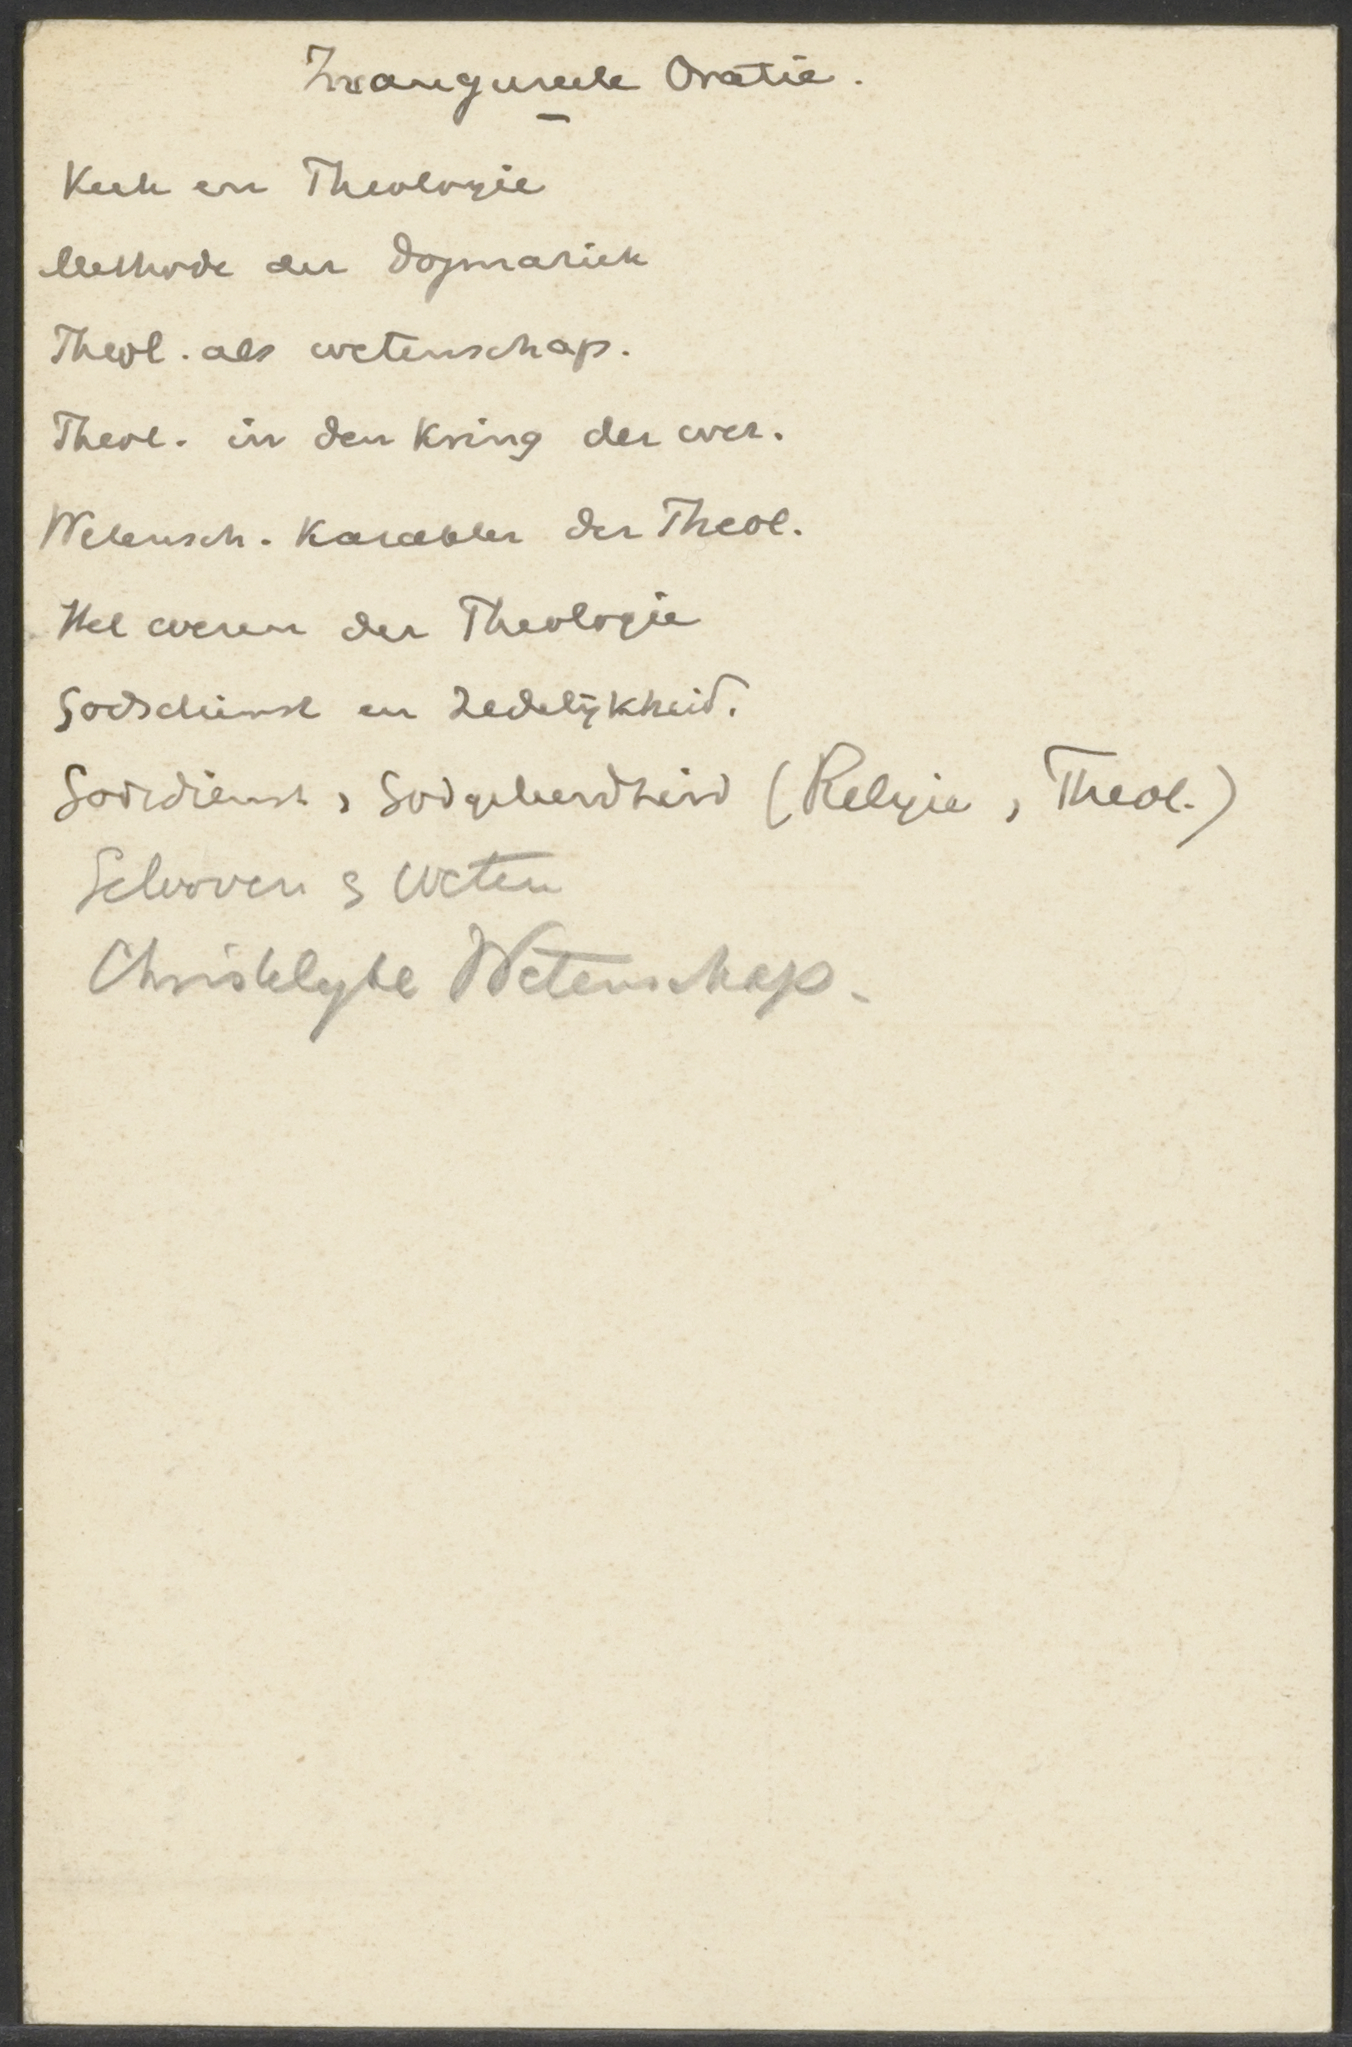 Inaugureele Oratie.
Kerk en Theologie
Methode der dogmatiek
Theol. als wetenschap.
Theol. in den Kring der wet.
Wetensch. Karakter der Theol.
Het wezen der Theologie
Godsdienst en Zedelijkheid.
Godsdienst, Godgeleerdheid (Religie, Theol.)
Gelooven & weten
Christelijke Wetenschap.